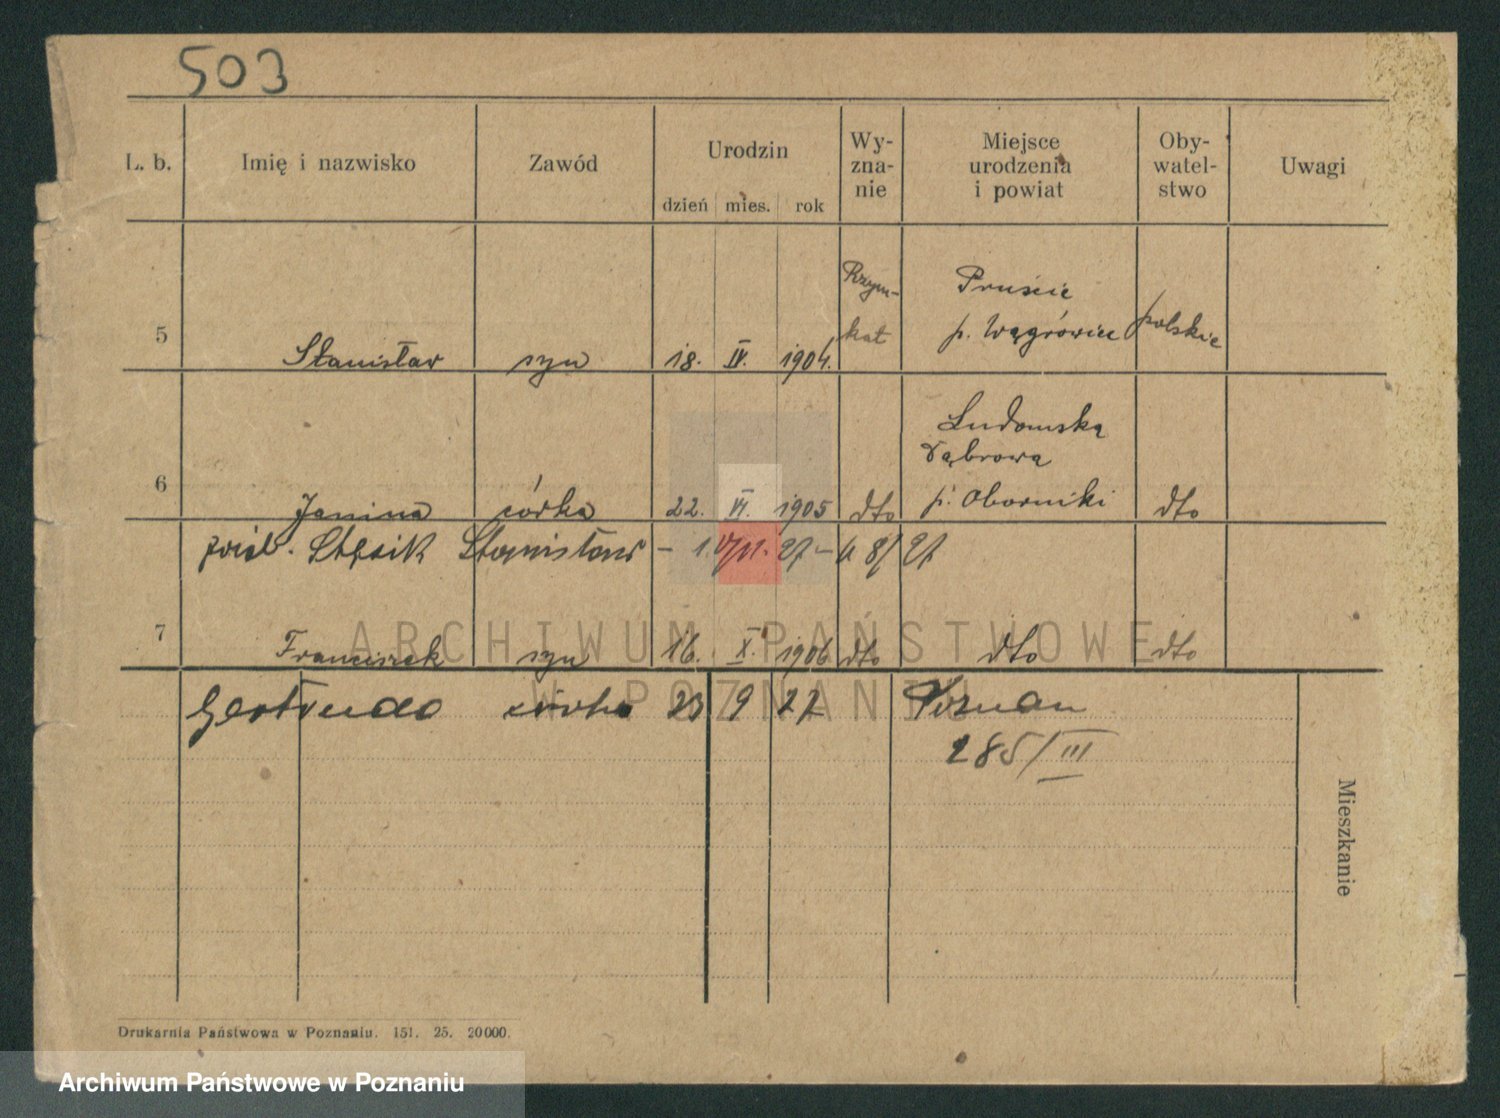 503
L. b. Imię i nazwisko Zawód Urodzin dzień mies. rok Wy-zna-nie Miejsce urodzenia i powiat Oby-watel-stwo Uwagi
Rzym-kat Pruście
5 Stanisław syn 18. IV. 1904. p. Wągrówiec polskie
Ludomską
Dąbrową
6 Janina córka 22. VI. 1905 dto p. Oborniki dto
Stanisław – 1. 27 – 8/27
7 Franciszek syn 16. X. 1906 dto dto dto
ARCHIWUM PAŃSTWOWE
W POZNANIU
Gertruda córka 23 9 27 Poznan
285/III
Mieszkanie
Drukarnia Państwowa w Poznaniu. 151. 25. 20000.
Archiwum Państwowe w Poznaniu